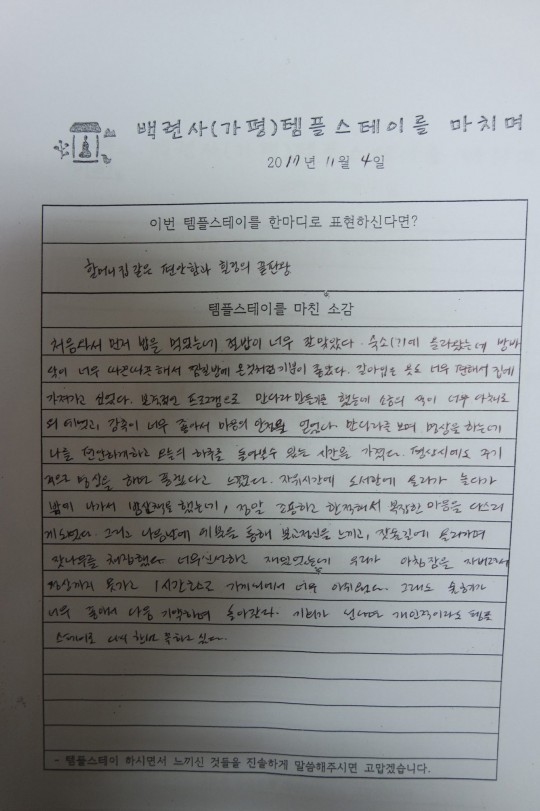 백련사(가평)템플스테이를 마치며
2017년 11월 4일
이번 템플스테이를 한마디로 표현하신다면?
할머니집같은 편안함과 힐링의 끝판왕
템플스테이를 마친 소감
처음와서 먼저 밥을 먹었는데 절밥이 너무 잘맞았다. 숙소에 올라왔는데 방바
닥이 너무 따끈따끈해서 찜질방에 온것처럼 기분이 좋았다. 갈아입은 옷도 너무 편해서 집에
가져가고 싶었다. 본격적인 프로그램으로 만다라 만들기를 했는데 색이 너무
감촉이 너무 좋아서 마음의 안정을 얻었다. 만다라를 보며 명상을 하는데
나를 편안하게하고 오늘의 하루를 돌아볼수 있는 시간을 가졌다. 평상시에도 주기
적으로 명상을 하면 좋겠다고 느꼈다. 자유시간에 도서관에 놀다가
밤에 나가서 밤산책을 했는데, 정말 조용하고 한적해서 복잡한 마음을 다스리
게되었다. 그리고 다음날에 예불을 통해 느끼고, 잣숲길에 올라가며
잣나무를 체험했다. 너무신선하고 재밌었는데 우리가 아침잠을 자버려서
정상까지 못가고 1시간하고 가게되어서 너무 아쉬웠다. 그래도 숲향기가
너무 좋아서 다음 기약하며 돌아갔다. 기회가 된다면 개인적이라도 템플
스테이를 다시 한번 하고 싶다.
- 템플스테이 하시면서 느끼신 것들을 진솔하게 말씀해주시면 고맙겠습니다.